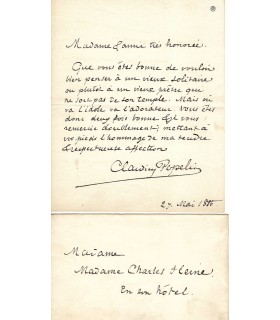 Madame & amie très honorée.
Que vous êtes bonne de vouloir
bien penser à un vieux solitaire
ou plutôt à un vieux prêtre qui
ne sort pas de son temple. Mais où
va l'idole va l'adorateur. Vous êtes
donc deux fois bonne & il vous
remercie doublement, mettant à
vos pieds l'hommage de ma tendre
& respectueuse affection
Claudius Popelin
27 Mai 1886
Madame
Madame Charles Heine.
En son hôtel.